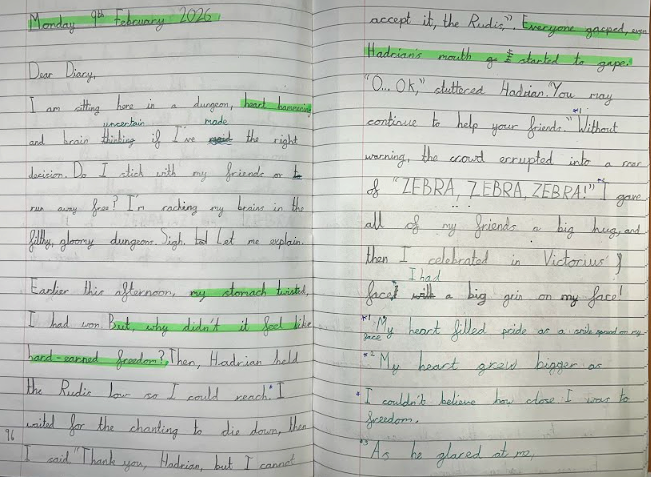 Monday 9th February 2026
Dear Diary,
I am sitting here in a dungeon, heart hammering
uncertain made
and brain thinking if I've the right
decision. Do I stick with my friends or
run away free? I'm racking my brains in the
filthy, gloomy dungeon. Sigh Let me explain.
Earlier this afternoon, my stomach twisted,
I had won But, why didn't it feel like
hard-earned freedom? Then, Hadrian held
the Rudis low so I could reach.* I
waited for the chanting to die down, then
96 I said "Thank you, Hadrian, but I cannot
accept it, the Rudis,". Everyone gasped, even
Hadrian's mouth started to gape.
"O... OK," stuttered Hadrian. "You may
continue to help your friends." *1 Without
warning, the crowd errupted into a roar
of "ZEBRA, ZEBRA, ZEBRA!" I gave
all of my friends a big hug, and
then I celebrated in Victorius'
I had
face a big grin on my face!
*1 My heart filled pride as a smile spread on my
face
*2 My heart grew bigger as
* I couldn't believe how close I was to
freedom.
*3 As he glared at me,